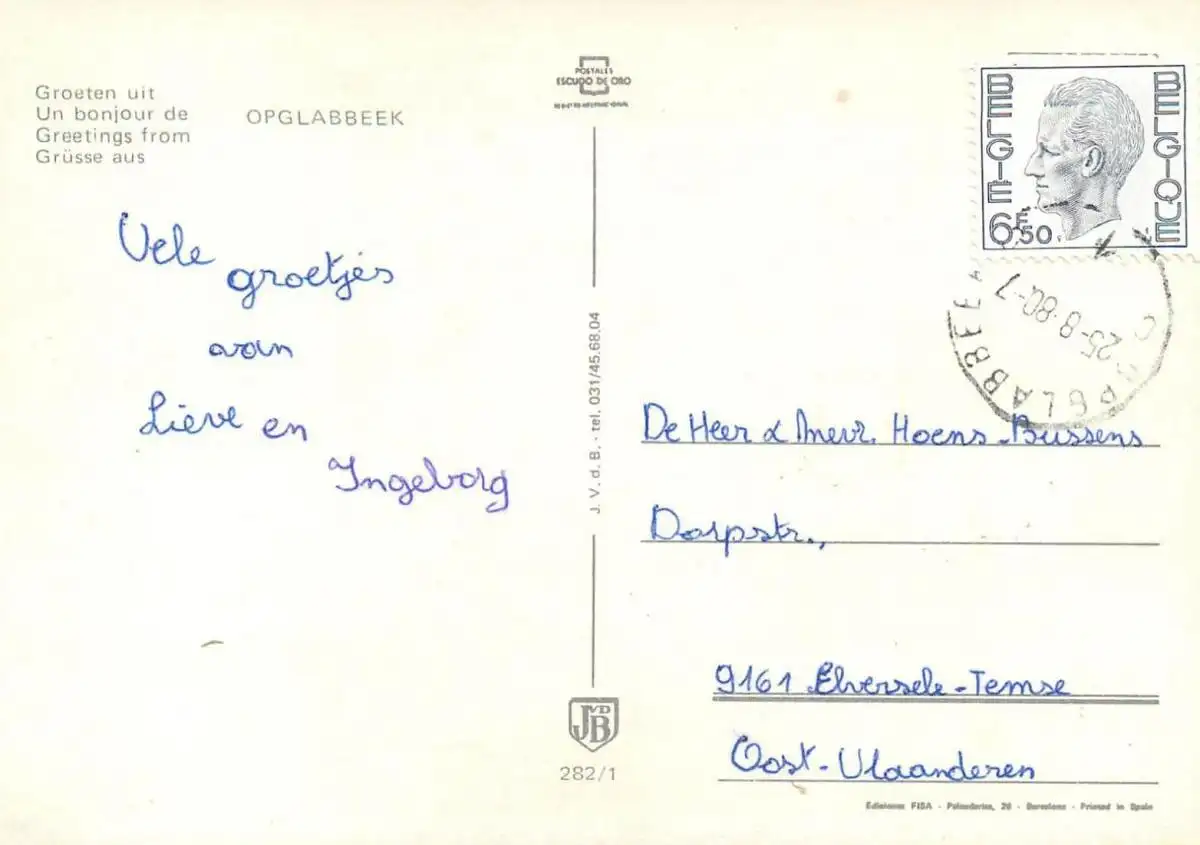 Groeten uit
Un bonjour de
Greetings from
Grüsse aus
OPGLABBEEK
POSTALES
ESCUDO DE ORO
BELGIE
BELGIQUE
6F50
OPGLABBEEK
25-8-80-7
Vele
groetjes
van
Lieve en
Ingeborg
J. V. d. B. - tel. 031/45.68.04
De Heer & Mevr. Hoens-Bussens
Dorpstr.,
9161 Elversele-Temse
Oost-Vlaanderen
JVDB
282/1
Ediciones FISA - Palaudarias, 26 - Barcelona - Printed in Spain